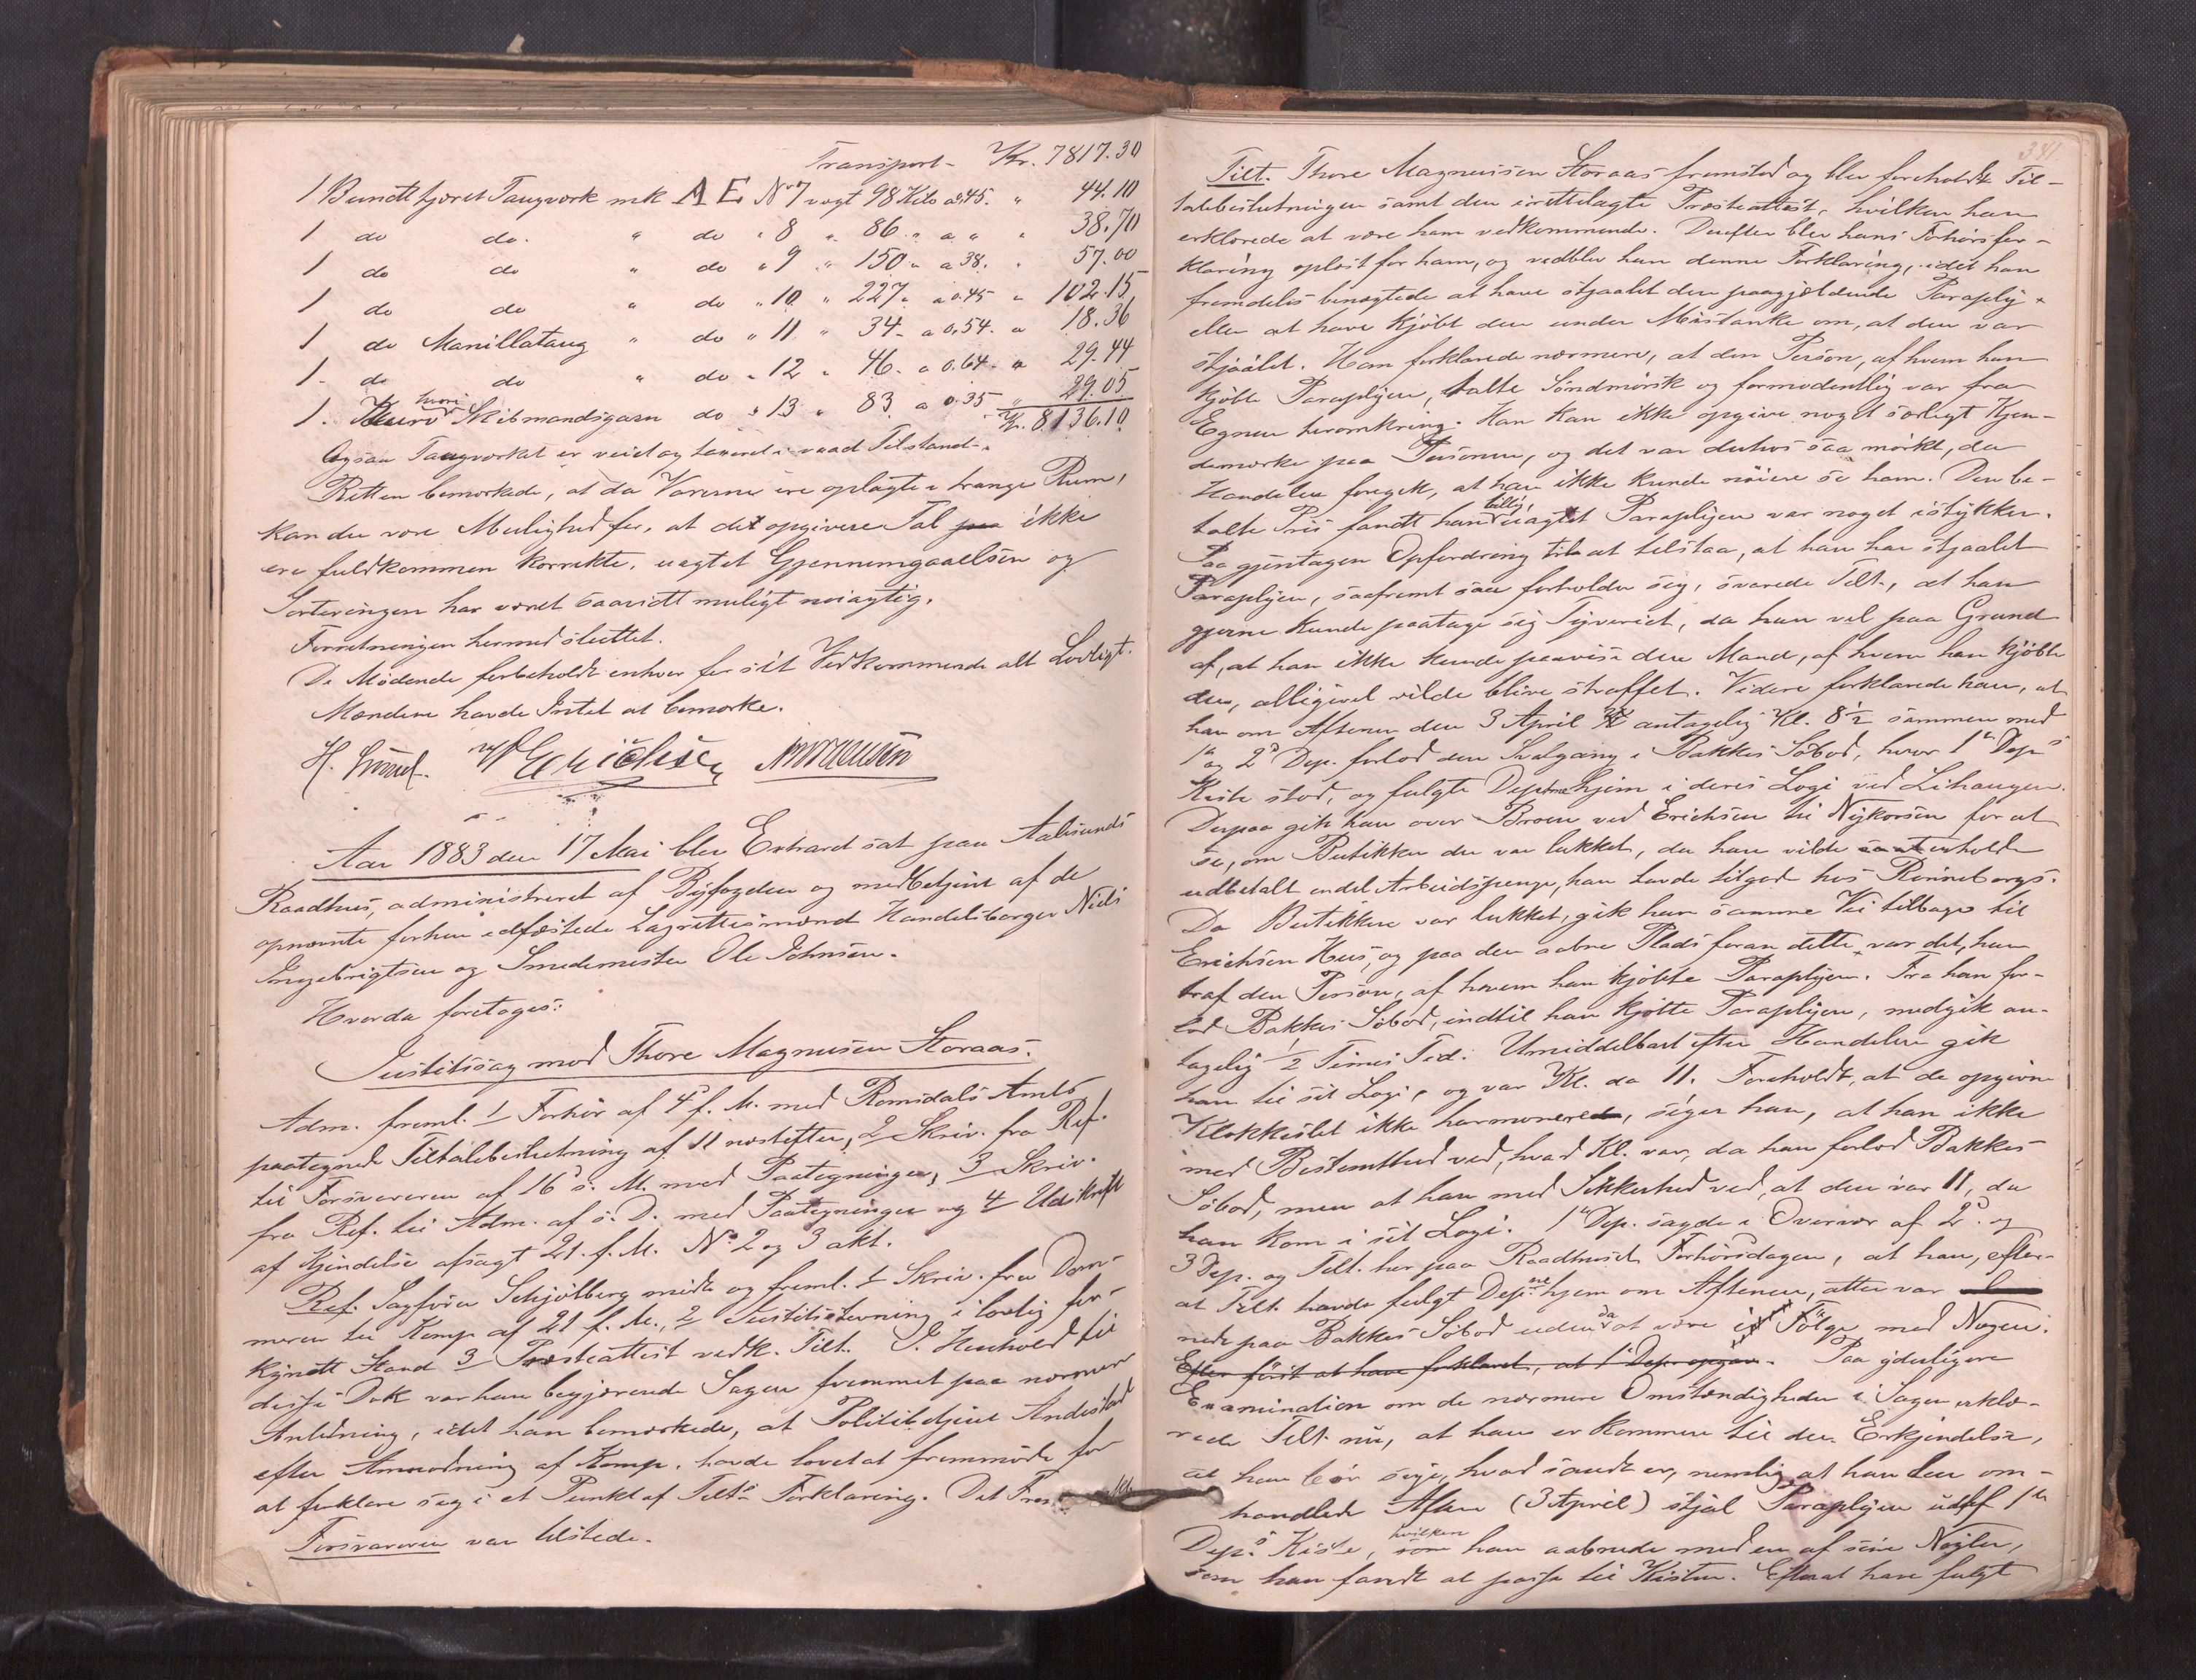 Transport - Kr. 7817.30
1 Bundt tjæret Taugværk mk AE No 7 vægt 98 Kilo a 45. " 44.10
1 do do. " do " 8 " 86 " a " " 38.70
1 do do " do " 9 " 150 " a 38. " 57.00
1 do do " do " 10 " 227 " a 0.45 " 102.15
1 do Manillataug " do " 11 " 34 - a 0.54 - " 18.36
1 - do do " do " 12 " 46 - a 0.64 - " 29.44
1 - hvori Skibmandsgarn do " 13 " 83 a 0.35 - " 29.05
Kr. 8136.10
Ogsaa Taugværket er veiet og taxeret i vaad Tilstand -.
Retten bemærkede, at da Varerne ere oplagte i trange Rum,
kan der være Mulighed for, at det opgivere Tal ikke
ere fuldkommen korrekte, uagtet Gjennemgaaelsen og
Sorteringen har været saavidt muligt nøiagtig.
Forretningen hermed sluttet.
De Mødende forbeholdt enhver for sit Vedkommende alt Lovligt.
Mændene havde Intet at bemærke.
Aar 1883 den 17 Mai blev Extraret sat paa Aalesunds
Raadhus, administreret af Byfogden og medbetjent af de
opnævnte forhen edfæstede Lagrettesmænd Handelsborger Niels
Ingebrigtsen og Smedemester Ole Johnsen.
Hvorda foretoges:
Justitssag mod Thore Magnussen Storaas.
Adm. freml. 1 Forhør af 4 f. M. med Romsdals Amts
paategnede Tiltalebeslutning af 11 næstefter, 2 Skriv. fra Ref.
til Forsvareren af 16 s. M. med Paategninger, 3 Skriv.
fra Ref. til Adm. af s. D. med Paategninger og 4 Udskrift
af Kjendelse afsagt 21. f. M. No 2 og 3 akt.
Ref. Sagfører Schjølberg mødte og freml. 1 Skriv. fra Dom-
meren til Komp af 21 f. M., 2 Justitsstevning i lovlig for-
kyndt Stand 3 Præsteattest vedk. Tilt. I Henhold til
disse Dok var han begjærende Sagen fremmet paa nærmere
Anledning, idet han bemærkede, at Politibetjent Andestad
efter Anmodning af Komp. havde lovet at fremmøde for
at forklare sig i et Punkt af Tilts Forklaring. Det Frem
Forsvareren var tilstede.
381
Tilt. Thore Magnussen Storaas fremstod og blev foreholdt Til-
talebeslutningen samt den irettelagte Præsteattest, hvilken han
erklærede at være ham vedkommende. Derefter blev hans Forhørsfor-
klaring oplæst for ham, og vedblev han denne Forklaring, idet han
fremdeles benægtede at have stjaalet den paagjældende Paraply
eller at have kjøbt den under Mistanke om, at den var
stjaalet. Han forklarede nærmere, at den Person, af hvem han
kjøbte Paraplyen, talte Søndmørsk og formodentlig var fra
Egnen heromkring. Han kan ikke opgive noget særligt Kjen-
demærke paa Personen, og det var derhos saa mørkt, da
Handelen foregik, at han ikke kunde nøiere se ham. Den be-
talte Pris fandt han billig, uagtet Paraplyen var noget istykker.
Paa gjentagen Opfordring til at tilstaa, at han har stjaalet
Paraplyen, saafremt saa forholder sig, svarede Tilt., at han
gjerne kunde paatage sig Tyveriet, da han vel paa Grund
af, at han ikke kunde paavise den Mand, af hvem han kjøbte
den, alligevel vilde blive straffet. Videre forklarede han, at
han om Aftenen den 3 April antagelig Kl. 8½ sammen med
1ste og 2den Dep. forlod den Svalgang i Bakkes Søbod, hvor 1ste Deps
Kiste stod, og fulgte Depterne hjem i deres Logi ved Lihaugen.
Derpaa gik han over Broen ved Erichsen til Nykorsen for at
se, om Butikken der var lukket, da han vilde erholde
udbetalt endel Arbeidspenge, han havde tilgode hos Rønnebergs.
Da Butikken var lukket, gik han samme Vei tilbage til
Erichsen Hus, og paa den aabne Plads foran dette var det, han
traf den Person, af hvem han kjøbte Paraplyen. Fra han for-
lod Bakkes Søbod, indtil han kjøbte Paraplyen, medgik an-
tagelig ½ Times Tid. Umiddelbart efter Handelen gik
han til sit Logi, og var Kl. da 11. Foreholdt, at de opgivne
Klokkeslet ikke harmonerer, siger han, at han ikke
med Bestemthed ved, hvad Kl. var, da han forlod Bakkes
Søbod, men at han med Sikkerhed ved, at den var 11, da
han kom i sit Logi. 1ste Dep. sagde i Overvær af 2den og
3 Dep. og Tilt. her paa Raadhuset Forhørsdagen, at han, efter-
at Tilt. havde fulgt Depne hjem om Aftenen, atter var
nede paa Bakkes Søbod uden da at være i Følge med Nogen.
Efter først at have forklaret, at 1 Dep. opgav. Paa yderligere
Examination om de nærmere Omstændigheder i Sagen erklæ-
rede Tilt. nu, at han er kommen til den Erkjendelse,
at han bør sige, hvad sandt er, nemlig at han den om-
handlede Aften (3 April) stjal Paraplyen udaf 1ste
Deps Kiste, hvilken han aabnede med en af sine Nøgler,
som han fandt at passe til Kisten. Efterat have fulgt